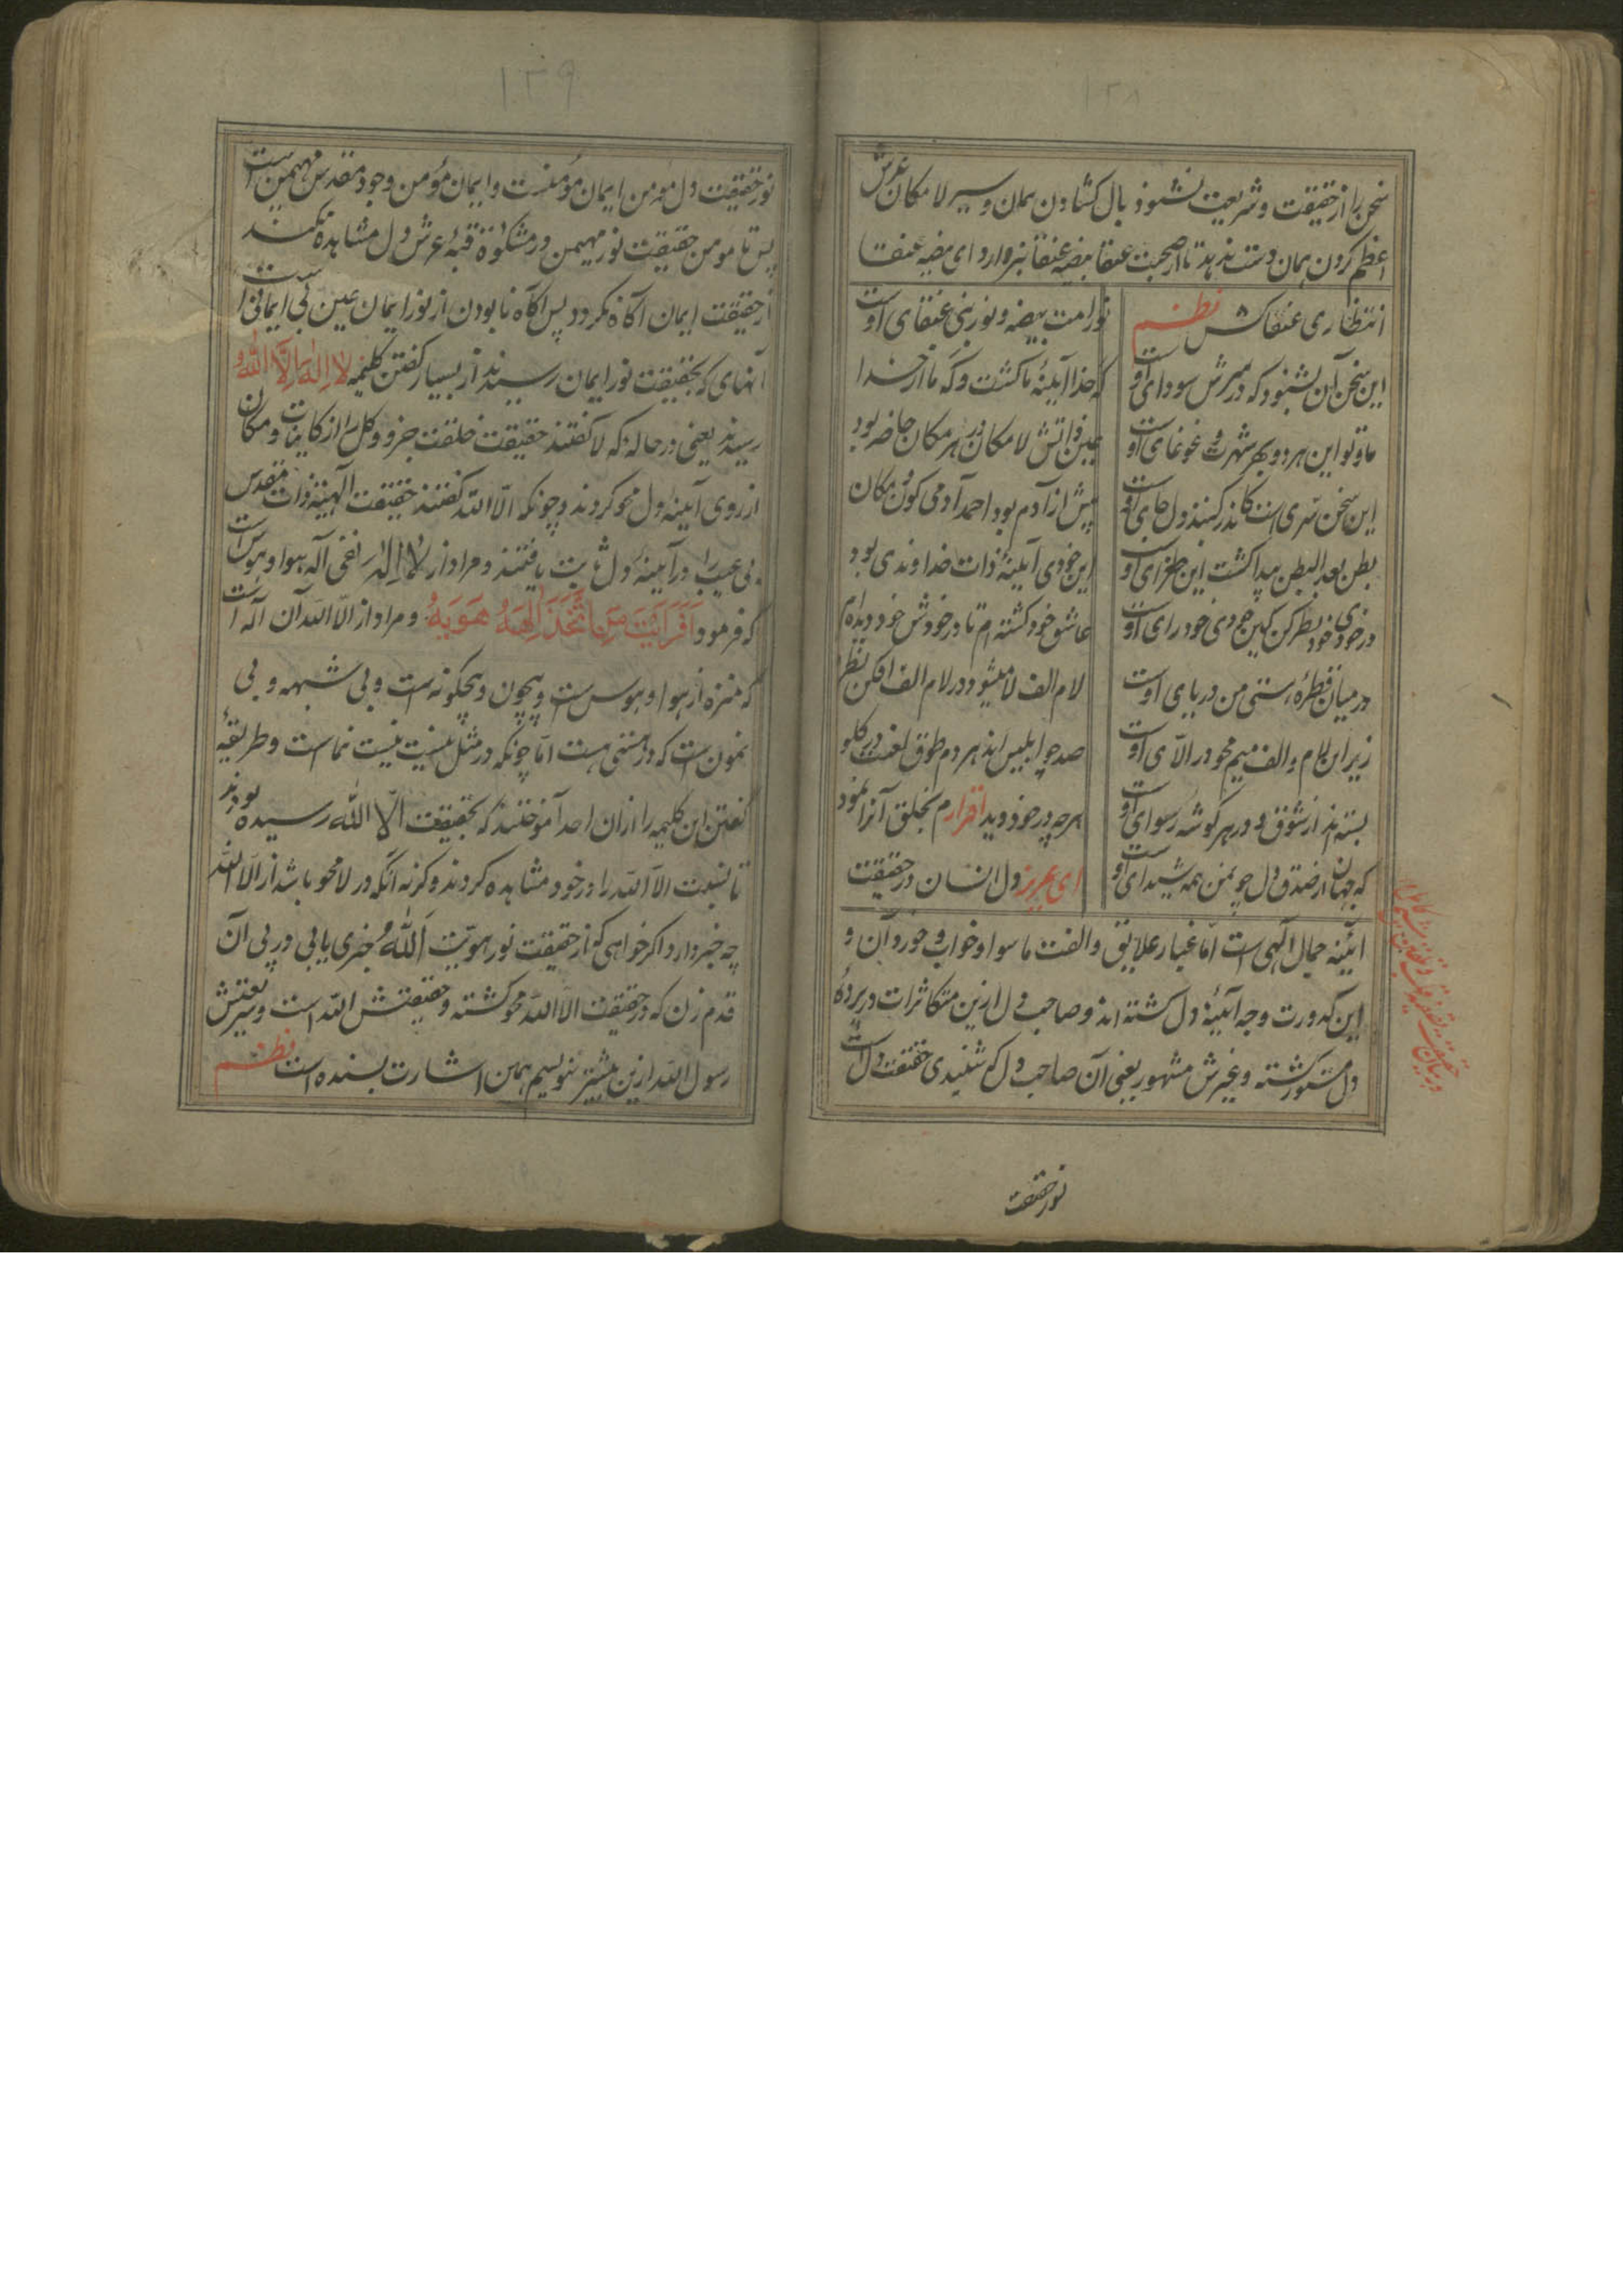 ۱۳۸
سخن را از حقیقت و شریعت نشنود بال کشادن همان و سیر لامکان عرش
اعظم کردن همان دست ندهد تا از صحبت عنقا بیضه عنقا نبرد ارد ای بیضه عنقا
انتظاری عنقا کش نظم نور امت بیضه و نور نبی عنقای اوست
این سخن آن بشنود که در سرش سودای اوست که خدا آیینهٔ ما کشت و که ما از خدا
ما و تو این هر دو بهر شهرت و غوغای اوست عین ذاتش لامکان در هر مکان حاضر بود
این سخن سری است کاندر کنبد دل جای اوست پیش از آدم بود احمد آدمی کون و مکان
بطن بعد البطن پیدا کشت این طغرای اوست این خودی آیینهٔ ذات خداوندی بود
در خودی خود نظر کن کین خودی خود رای اوست عاشق خود کشته ام تا در خودش خود دیده ام
در میان قطرهٔ هستی من دریای اوست لام الف لا میشود در لام الف افکن نظر
زیر این لام و الف میم محو در الای اوست صد چو ابلیس اند هر دم طوق لعنت در کلو
بسته اند از شوق و در هر کوشه رسوای اوست هرچه در خود دید اقرارم بخلق آنرا نمود
که جهان از صدق دل چو من همه شیدای اوست ای عزیز دل انسان در حقیقت
آیینه جمال الهی است اما غبار علایق و الفت ماسوا و خواب و خور و آن و
این کدورت وجه آیینهٔ دل کشته اند و صاحب دل ازین متکاثرات در پردهٔ
دل مستور کشته و غیرش مشهور یعنی آن صاحب دل که شنیدی حقیقت دل است
نور حقیقت
۱۳۹
نور حقیقت دل مومن ایمان مؤمنست و ایمان مؤمن وجود مقدس مهیمن است
پس تا مومن حقیقت نور مهیمن در مشکوة قبهٔ عرش دل مشاهده نکند
از حقیقت ایمان آکاه نکردد پس آکاه نابودن از نور ایمان عین بی ایمانی است
آنهای که بحقیقت نور ایمان رسیدند از بسیار کفتن کلیمه لا اله الا الله
رسیدند یعنی در حالهٔ که لا کفتند حقیقت خلقت جزو و کل را از کاینات و مکان
از روی آیینهٔ دل محو کردند و چونکه الا الله کفتند حقیقت الهیهٔ ذات مقدس
بی عیب را در آیینهٔ دل ثابت یافتند و مراد از لا اله نفی آله هوا و هوس است
که فرمود اَفَرَاَیْتَ مَنِ اتَّخَذَ اِلٰهَهُ هَوٰیهُ و مراد از الا الله آن اله است
که منزه از هوا و هوس است و بیچون و بیچکونه است و بی شبهه و بی
نمون است که در هستی هست اما چونکه در مثل نیست نیست نماست و طریقهٔ
کفتن این کلیمه را از آن احد آموختند که بحقیقت الا الله رسیده بودند
تا نسبت الا الله را در خود مشاهده کردند و کرنه آنکه در لا محو باشد از الا الله
چه خبر دارد اکر خواهی که از حقیقت نور هویت الله خبری یابی در پی آن
قدم زن که در حقیقت الا الله محو کشته و حقیقتش الله است و تعینش
رسول الله ازین بیشتر ننویسیم همین اشارت بسنده است نظم